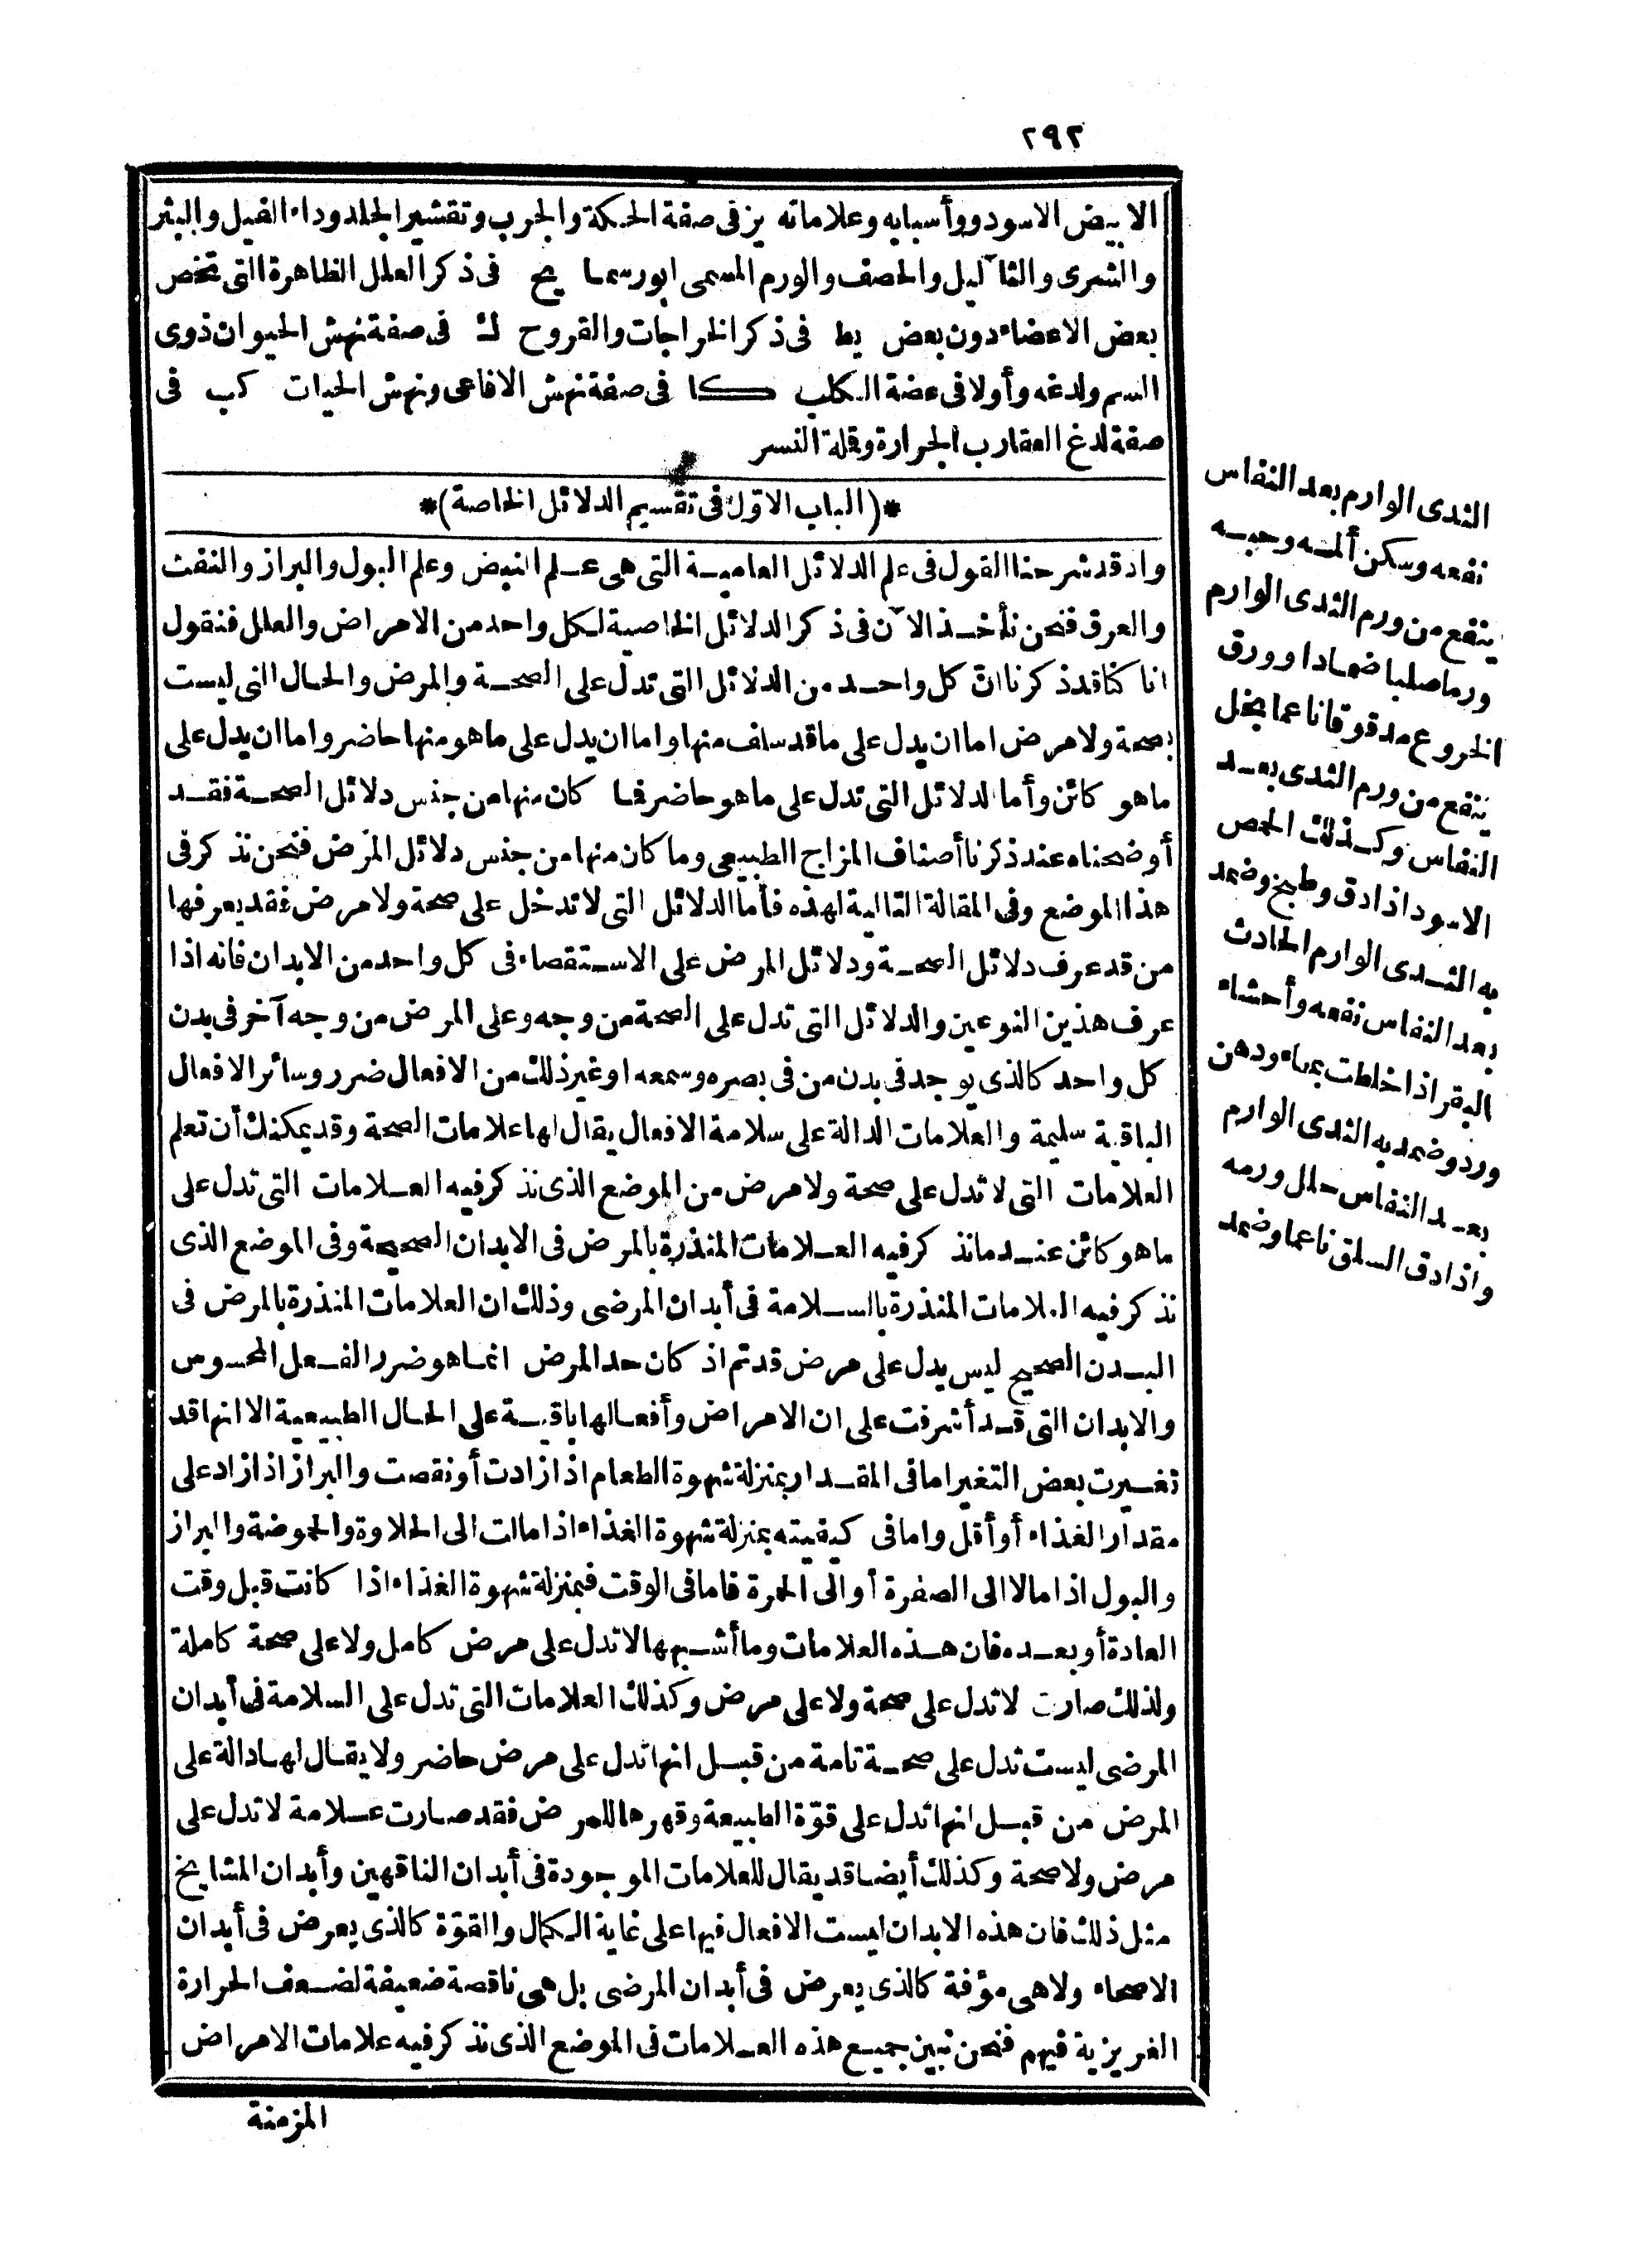 ٢٩٢
الابيض الاسود وأسبابه وعلاماته يز فى صفة الحكة والجرب وتقشير الجلد وداء الفيل والبثر
والشرى والثآليل والحصف والورم المسمى ابورسما يح فى ذكر العلل الظاهرة التى تخص
بعض الاعضاء دون بعض يط فى ذكر الخراجات والقروح ك فى صفة نهش الحيوان ذوى
السم ولدغه وأولا فى عضة الكلب كا فى صفة نهش الافاعى ونهش الحيات كب فى
صفة لدغ العقارب الجرارة وقملة النسر
*(الباب الاوّل فى تقسيم الدلائل الخاصة)*
واذ قد شرحنا القول فى علم الدلائل العامية التى هى علم النبض وعلم البول والبراز والنفث
والعرق فنحن نأخذ الآن فى ذكر الدلائل الخاصية لكل واحد من الامراض والعلل فنقول
انا كنا قد ذكرنا انّ كل واحد من الدلائل التى تدل على الصحة والمرض والحال التى ليست
بصحة ولا مرض اما ان يدل على ما قد سلف منها واما ان يدل على ما هو منها حاضر واما ان يدل على
ما هو كائن وأما الدلائل التى تدل على ما هو حاضر فما كان منها من جنس دلائل الصحة فقد
أوضحناه عند ذكرنا أصناف المزاج الطبيعى وما كان منها من جنس دلائل المرض فنحن نذكر فى
هذا الموضع وفى المقالة التالية لهذه فأما الدلائل التى لا تدخل على صحة ولا مرض فقد يعرفها
من قد عرف دلائل الصحة ودلائل المرض على الاستقصاء فى كل واحد من الابدان فانه اذا
عرف هذين النوعين والدلائل التى تدل على الصحة من وجه وعلى المرض من وجه آخر فى بدن
كل واحد كالذى يوجد فى بدن من فى بصره وسمعه او غير ذلك من الافعال ضرر وسائر الافعال
الباقية سليمة والعلامات الدالة على سلامة الافعال يقال لها علامات الصحة وقد يمكنك أن تعلم
العلامات التى لا تدل على صحة ولا مرض من الموضع الذى نذكر فيه العلامات التى تدل على
ما هو كائن عندما نذكر فيه العلامات المنذرة بالمرض فى الابدان الصحيحة وفى الموضع الذى
نذكر فيه العلامات المنذرة بالسلامة فى أبدان المرضى وذلك ان العلامات المنذرة بالمرض فى
البدن الصحيح ليس يدل على مرض قد تم اذ كان حد المرض انما هو ضرر الفعل المحسوس
والابدان التى قد أشرفت على ان الامراض وأفعالها باقية على الحال الطبيعية الا انها قد
تغيرت بعض التغير اما فى المقدار بمنزلة شهوة الطعام اذا زادت أو نقصت والبراز اذا زاد على
مقدار الغذاء أو أقل واما فى كيفيته بمنزلة شهوة الغذاء اذا مالت الى الحلاوة والحموضة والبراز
والبول اذا مالا الى الصفرة أو الى الحمرة فاما فى الوقت فبمنزلة شهوة الغذاء اذا كانت قبل وقت
العادة أو بعده فان هذه العلامات وما أشبهها لا تدل على مرض كامل ولا على صحة كاملة
ولذلك صارت لا تدل على صحة ولا على مرض وكذلك العلامات التى تدل على السلامة فى أبدان
المرضى ليست تدل على صحة تامة من قبل انها تدل على مرض حاضر ولا يقال لها دالة على
المرض من قبل انها تدل على قوّة الطبيعة وقهرها للمرض فقد صارت علامة لا تدل على
مرض ولا صحة وكذلك أيضا قد يقال للعلامات الموجودة فى أبدان الناقهين وأبدان المشايخ
مثل ذلك فان هذه الابدان ليست الافعال فيها على غاية الكمال والقوّة كالذى يعرض فى أبدان
الاصحاء ولا هى مؤفة كالذى يعرض فى أبدان المرضى بل هى ناقصة ضعيفة لضعف الحرارة
الغريزية فيهم فنحن نبين جميع هذه العلامات فى الموضع الذى نذكر فيه علامات الامراض
المزمنة
الثدى الوارم بعد النفاس
نفعه وسكن ألمه وحبه
ينفع من ورم الثدى الوارم
ورما صلبا ضمادا وورق
الخروع مدقوقا ناعما بخل
ينفع من ورم الثدى بعد
النفاس وكذلك الحمص
الاسود اذا دق وطبخ وضمد
به الثدى الوارم الحادث
بعد النفاس نفعه وأحشاء
البقر اذا خلطت بماء ودهن
ورد وضمد به الثدى الوارم
بعد النفاس حلل ورمه
واذا دق السلق ناعما وضمد